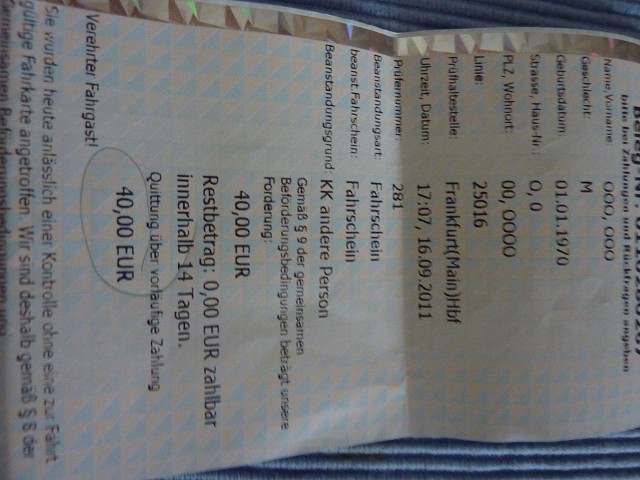 bitte bei Zahlungen und Rückfragen angeben
Name, Vorname: OOO, OOO
Geschlecht: M
Geburtsdatum: 01.01.1970
Strasse, Haus-Nr.: O, 0
PLZ, Wohnort: 00, OOOO
Linie: 25016
Prüfhaltestelle: Frankfurt(Main)Hbf
Uhrzeit, Datum: 17:07, 16.09.2011
Prüfernummer: 281
Beanstandungsart: Fahrschein
beanst.Fahrschein: Fahrschein
Beanstandungsgrund: KK andere Person
Gemäß § 9 der gemeinsamen
Beförderungsbedingungen beträgt unsere
Forderung:
40,00 EUR
Restbetrag: 0,00 EUR zahlbar
innerhalb 14 Tagen.
Quittung über vorläufige Zahlung
40,00 EUR
Verehrter Fahrgast!
Sie wurden heute anlässlich einer Kontrolle ohne eine zur Fahrt
gültige Fahrkarte angetroffen. Wir sind deshalb gemäß § 8 der